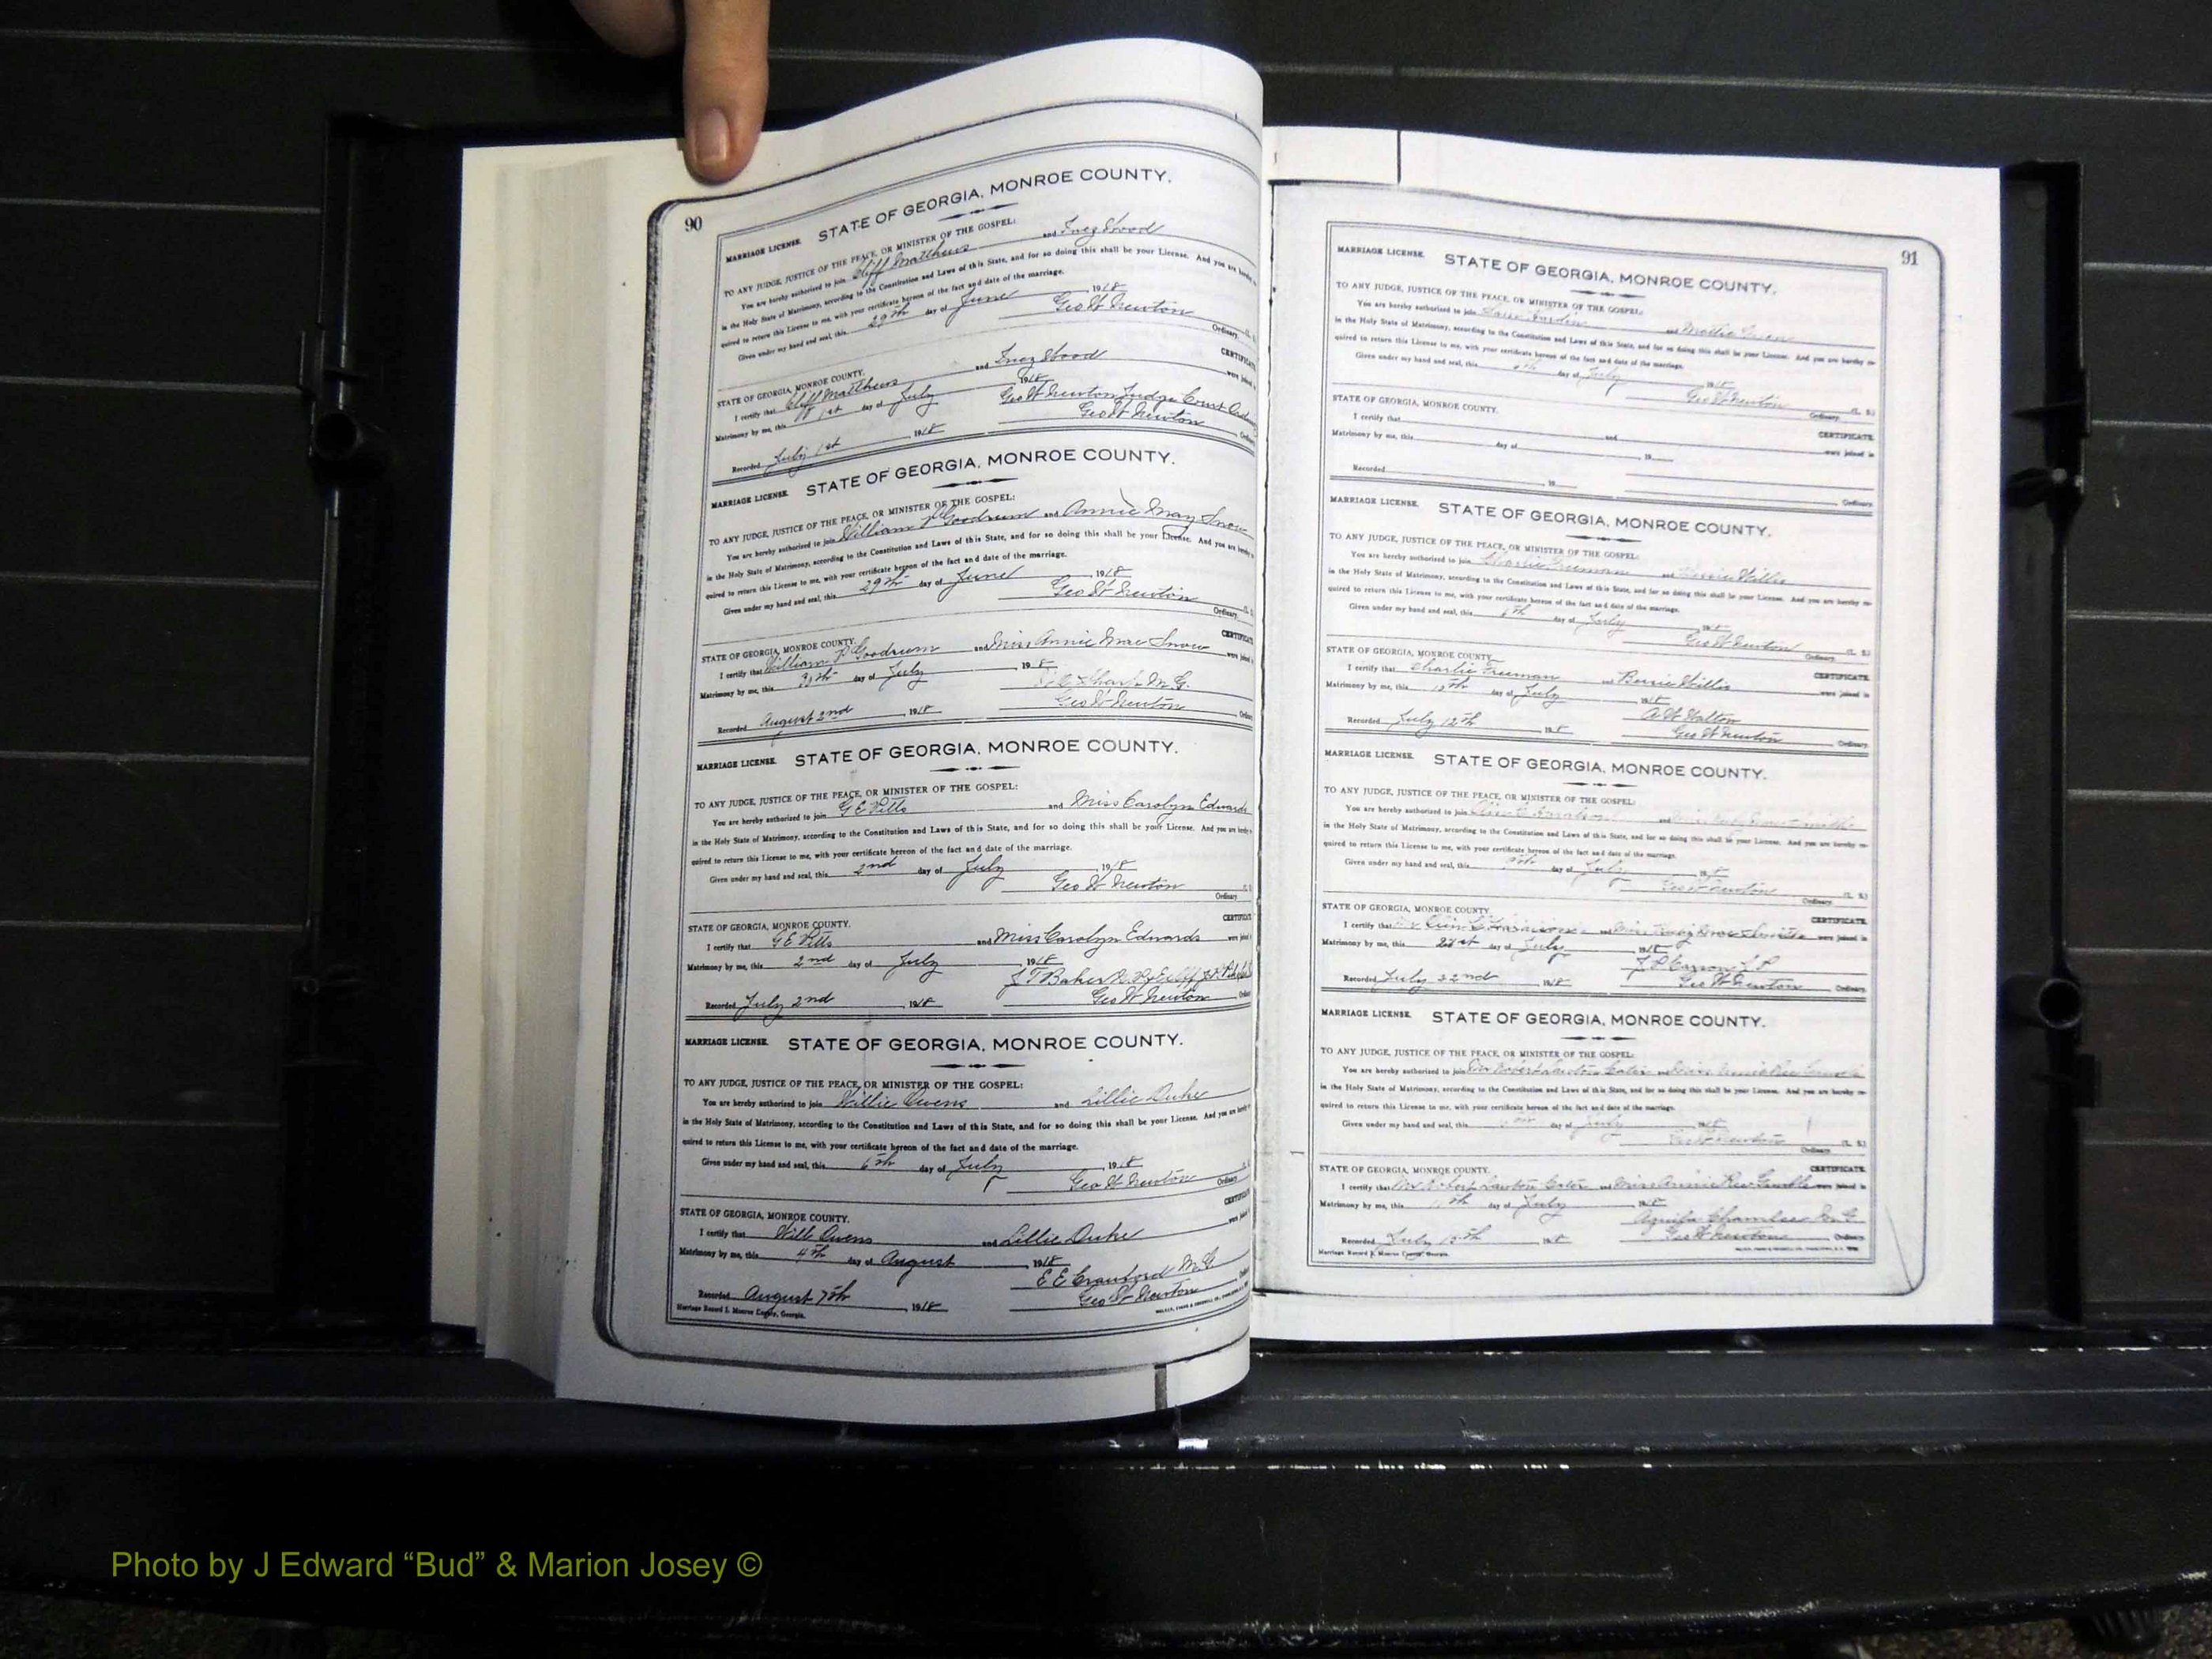 90
MARRIAGE LICENSE. STATE OF GEORGIA, MONROE COUNTY.
TO ANY JUDGE, JUSTICE OF THE PEACE, OR MINISTER OF THE GOSPEL:
You are hereby authorized to join Cliff Matthews and Inez Wood
in the Holy State of Matrimony, according to the Constitution and Laws of this State, and for so doing this shall be your License. And you are hereby
quired to return this License to me, with your certificate hereon of the fact and date of the marriage.
Given under my hand and seal, this 29th day of June 1918
Geo W Newton
Ordinary.
STATE OF GEORGIA, MONROE COUNTY. CERTIFICATE
I certify that Cliff Matthews and Inez Wood were joined
Matrimony by me, this 1st day of July 1918
Geo W Newton Judge Court
Recorded July 1st 1918 Geo W Newton
MARRIAGE LICENSE. STATE OF GEORGIA, MONROE COUNTY.
TO ANY JUDGE, JUSTICE OF THE PEACE, OR MINISTER OF THE GOSPEL:
You are hereby authorized to join William P Goodrum and Annie May Snow
in the Holy State of Matrimony, according to the Constitution and Laws of this State, and for so doing this shall be your License. And you are hereby
quired to return this License to me, with your certificate hereon of the fact and date of the marriage.
Given under my hand and seal, this 29th day of June 1918
Geo W Newton
Ordinary.
STATE OF GEORGIA, MONROE COUNTY. CERTIFICATE
I certify that William P Goodrum and Miss Annie Mae Snow were joined
Matrimony by me, this 30th day of July 1918
Sharp M.G.
Recorded August 2nd 1918 Geo W Newton
MARRIAGE LICENSE. STATE OF GEORGIA, MONROE COUNTY.
TO ANY JUDGE, JUSTICE OF THE PEACE, OR MINISTER OF THE GOSPEL:
You are hereby authorized to join G E Pitts and Miss Carolyn Edwards
in the Holy State of Matrimony, according to the Constitution and Laws of this State, and for so doing this shall be your License. And you are hereby
quired to return this License to me, with your certificate hereon of the fact and date of the marriage.
Given under my hand and seal, this 2nd day of July 1918
Geo W Newton
Ordinary.
STATE OF GEORGIA, MONROE COUNTY. CERTIFICATE
I certify that G E Pitts and Miss Carolyn Edwards were joined
Matrimony by me, this 2nd day of July 1918
J T Baker
Recorded July 2nd 1918 Geo W Newton
MARRIAGE LICENSE. STATE OF GEORGIA, MONROE COUNTY.
TO ANY JUDGE, JUSTICE OF THE PEACE, OR MINISTER OF THE GOSPEL:
You are hereby authorized to join Willie Owens and Lillie Duke
in the Holy State of Matrimony, according to the Constitution and Laws of this State, and for so doing this shall be your License. And you are hereby
quired to return this License to me, with your certificate hereon of the fact and date of the marriage.
Given under my hand and seal, this 6th day of July 1918
Geo W Newton Ordinary.
STATE OF GEORGIA, MONROE COUNTY. CERTIFICATE
I certify that Willie Owens and Lillie Duke were joined
Matrimony by me, this 4th day of August 1918
E E Crawford M.G.
Recorded August 7th 1918 Geo W Newton
Marriage Record I. Monroe County, Georgia.
91
MARRIAGE LICENSE. STATE OF GEORGIA, MONROE COUNTY.
TO ANY JUDGE, JUSTICE OF THE PEACE, OR MINISTER OF THE GOSPEL:
You are hereby authorized to join and Mollie
in the Holy State of Matrimony, according to the Constitution and Laws of this State, and for so doing this shall be your License. And you are hereby re-
quired to return this License to me, with your certificate hereon of the fact and date of the marriage.
Given under my hand and seal, this day of July 1918
Geo W Newton (L. S.)
Ordinary.
STATE OF GEORGIA, MONROE COUNTY. CERTIFICATE.
I certify that and were joined in
Matrimony by me, this day of 19
Recorded 19 Ordinary.
MARRIAGE LICENSE. STATE OF GEORGIA, MONROE COUNTY.
TO ANY JUDGE, JUSTICE OF THE PEACE, OR MINISTER OF THE GOSPEL:
You are hereby authorized to join Charlie Freeman and Willis
in the Holy State of Matrimony, according to the Constitution and Laws of this State, and for so doing this shall be your License. And you are hereby re-
quired to return this License to me, with your certificate hereon of the fact and date of the marriage.
Given under my hand and seal, this 6th day of July 1918
Geo W Newton (L. S.)
Ordinary.
STATE OF GEORGIA, MONROE COUNTY. CERTIFICATE.
I certify that Charlie Freeman and Bessie Willis were joined in
Matrimony by me, this day of July 1918
A W Walton
Recorded July 12th 1918 Geo W Newton Ordinary.
MARRIAGE LICENSE. STATE OF GEORGIA, MONROE COUNTY.
TO ANY JUDGE, JUSTICE OF THE PEACE, OR MINISTER OF THE GOSPEL:
You are hereby authorized to join and
in the Holy State of Matrimony, according to the Constitution and Laws of this State, and for so doing this shall be your License. And you are hereby re-
quired to return this License to me, with your certificate hereon of the fact and date of the marriage.
Given under my hand and seal, this day of July 1918
Geo W Newton (L. S.)
Ordinary.
STATE OF GEORGIA, MONROE COUNTY. CERTIFICATE.
I certify that and Miss were joined in
Matrimony by me, this 21st day of July 1918
Recorded July 22nd 1918 Geo W Newton Ordinary.
MARRIAGE LICENSE. STATE OF GEORGIA, MONROE COUNTY.
TO ANY JUDGE, JUSTICE OF THE PEACE, OR MINISTER OF THE GOSPEL:
You are hereby authorized to join Mr Robert Lawton and Miss Annie
in the Holy State of Matrimony, according to the Constitution and Laws of this State, and for so doing this shall be your License. And you are hereby re-
quired to return this License to me, with your certificate hereon of the fact and date of the marriage.
Given under my hand and seal, this day of July 1918
Geo W Newton (L. S.)
Ordinary.
STATE OF GEORGIA, MONROE COUNTY. CERTIFICATE.
I certify that Mr Robert Lawton and Miss Annie were joined in
Matrimony by me, this day of July 1918
Aquila Chamlee M.G.
Recorded July 15th 1918 Geo W Newton Ordinary.
Marriage Record I. Monroe County, Georgia.
Photo by J Edward “Bud” & Marion Josey ©